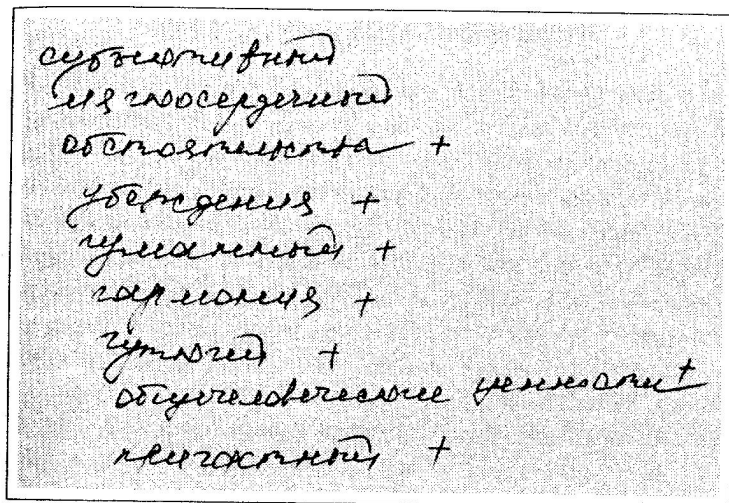 субъективный
мягкосердечный
обстоятельства +
убеждения +
гуманный +
гармония +
чуткий +
общечеловеческие ценности +